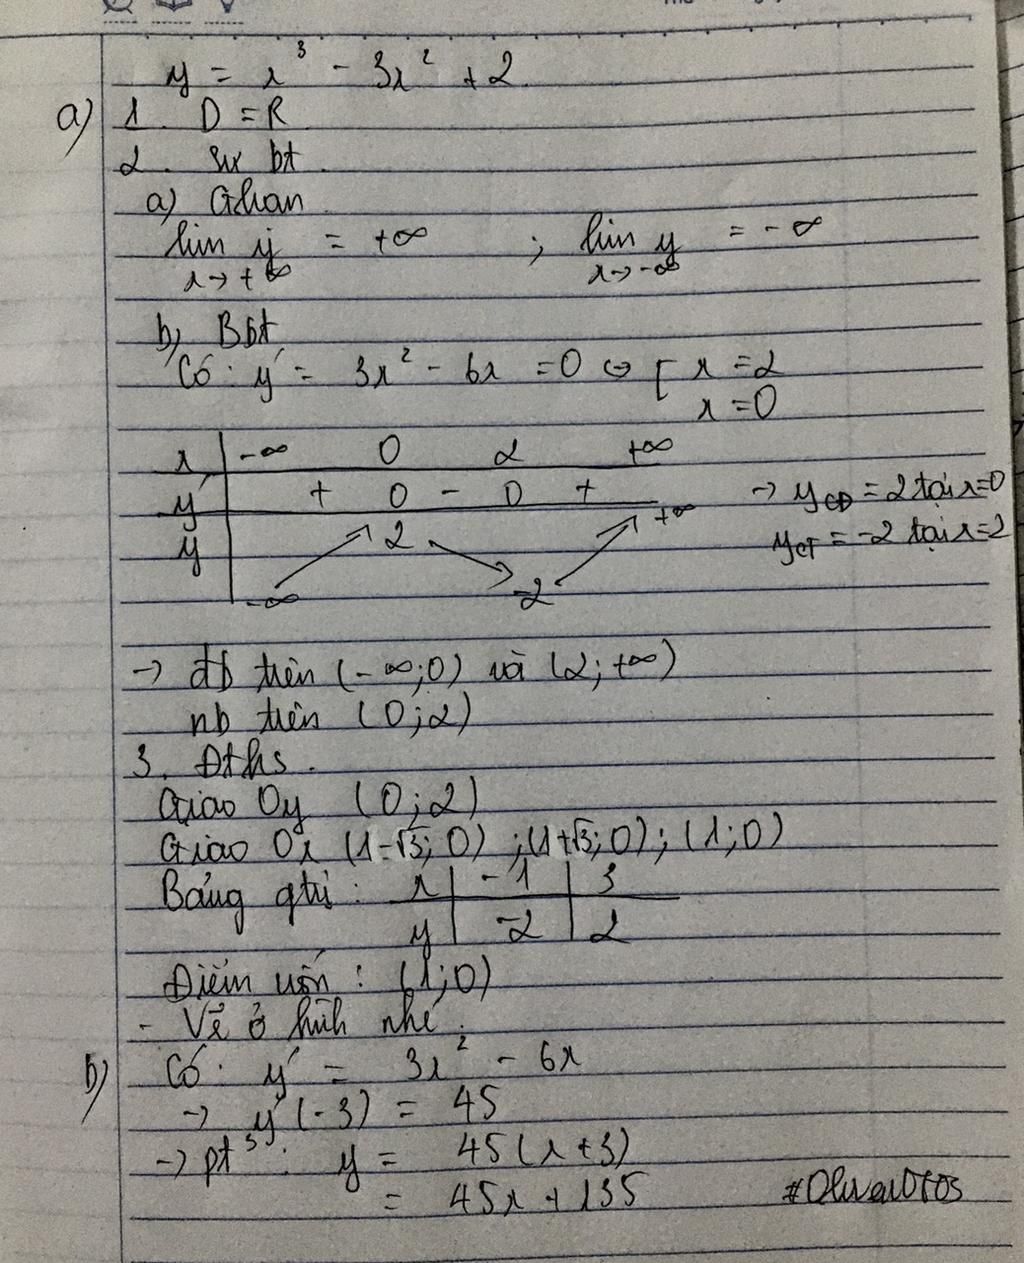 y = x³ - 3x² + 2
a) 1. D = R
2. Sự bt
a) Ghạn
lim y = +∞ ; lim y = -∞
x→+∞ x→-∞
b) Bbt
Có: y' = 3x² - 6x = 0 ⇔ [ x = 2
x = 0
x -∞ 0 2 +∞
y' + 0 - 0 + → yCĐ = 2 tại x=0
y -∞ ↗ 2 ↘ -2 ↗ +∞ yCT = -2 tại x=2
→ đb trên (-∞;0) và (2;+∞)
nb trên (0;2)
3. Đths.
Giao Oy (0;2)
Giao Ox (1-√3;0) ; (1+√3;0) ; (1;0)
Bảng gtrị: x -1 3
y -2 2
Điểm uốn : (1;0)
- Vẽ ở hình nhé.
b) Có: y' = 3x² - 6x
→ y'(-3) = 45
→ pt : y = 45(x+3)
= 45x + 135